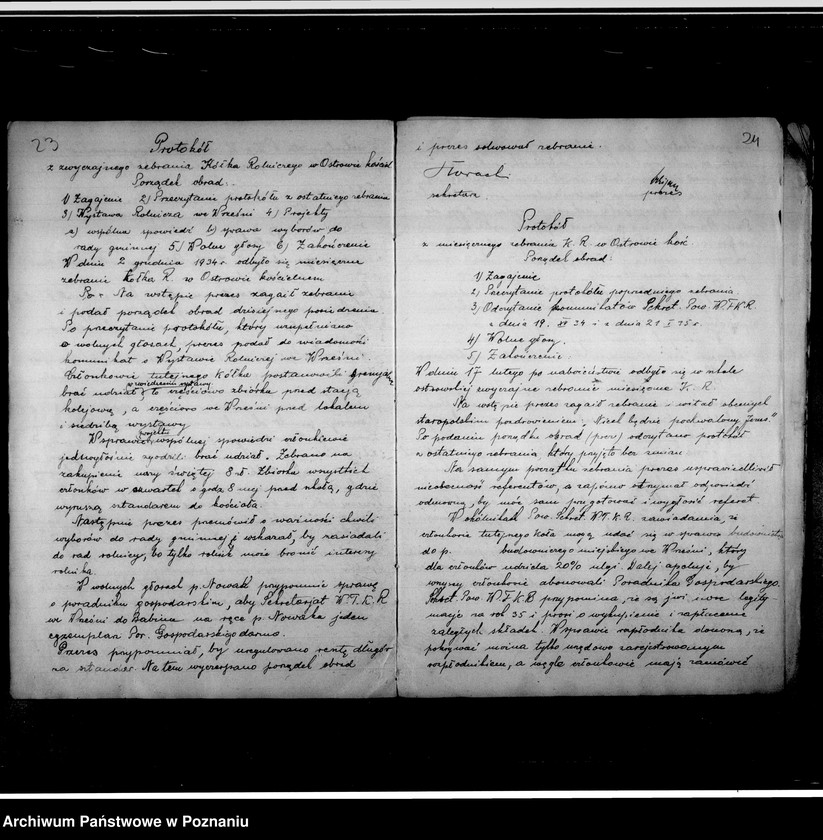 23
Protokół
z zwyczajnego zebrania Kółka Rolniczego w Ostrowie kośc.
Porządek obrad:
1) Zagajenie 2) Przeczytanie protokółu z ostatniego zebrania
3) Wystawa Rolnicza we Wrześni 4) Projekty
a) wspólna spowiedź b) sprawa wyborów do
rady gminnej 5) Wolne głosy 6) Zakończenie
W dniu 2 grudnia 1934 r. odbyło się miesięczne
zebranie Kółka R. w Ostrowie kościelnem
Na wstępie prezes zagaił zebranie
i podał porządek obrad dzisiejszego posiedzenia
Po przeczytaniu protokółu, który uzupełniono
w wolnych głosach, prezes podał do wiadomości
komunikat o Wystawie Rolniczej we Wrześni.
Członkowie tutejszego Kółka postanowili gremjalnie
brać udział w zwiedzeniu wystawy to częściowo zbiórka przed stacją
kolejową, a częściowo we Wrześni przed lokalem
i siedzibą wystawy
W sprawie projektu wspólnej spowiedzi członkowie
jednogłośnie zgodzili brać udział. Zebrano na
zakupienie mszy świętej 8 zł. Zbiórka wszystkich
członków w czwartek o godz 8 mej przed szkołą, gdzie
wyruszą sztandarem do kościoła.
Następnie prezes przemówił o ważności chwili
wyborów do rady gminnej i wskazał, by zasiadali
do rad rolnicy, bo tylko rolnik może bronić interesy
rolnika.
W wolnych głosach p. Nowak przypomnie sprawę
o poradniku gospodarskim, aby Sekretarjat W.T.K.R
we Wrześni do Babina na ręce p. Nowaka jeden
egzemplarz Por. Gospodarskiego darmo.
Prezes przypomniał, by uregulowano resztę długów
za sztandar. Na tem wyczerpano porządek obrad
24
i prezes solwował zebranie.
sekretarz
prezes
Protokół
z miesięcznego zebrania K. R. w Ostrowie kość.
Porządek obrad:
1) Zagajenie
2) Przeczytanie protokółu poprzedniego zebrania
3) Odczytanie komunikatów Sekret. Pow. W.T.K.R.
z dnia 19. XI 34 i z dnia 21 I 35 r.
4) Wolne głosy.
5) Zakończenie.
W dniu 17 lutego po nabożeństwie odbyło się w szkole
ostrowskiej zwyczajne zebranie miesięczne K. R.
Na wstępie prezes zagaił zebranie – witał obecnych
staropolskim pozdrowieniem: „Niech będzie pochwalony Jezus."
Po podaniu porządku obrad (przez) odczytano protokół
z ostatniego zebrania, który przyjęto bez zmian.
Na samym początku zebrania prezes usprawiedliwił
nieobecność referentów, a zapóźno otrzymał odpowiedź
odmowną, by móc sam przygotować i wygłosić referat
W okólnikach Pow. Sekret. W.T.K.R. zawiadamia, że
członkowie tutejszego Koła mogą udać się w sprawie budownictwa
do p. budowniczego miejskiego we Wrześni, który
dla członków udziela 20% ulgi. Dalej apeluje, by
wszyscy członkowie abonowali Poradnika Gospodarskiego.
Sekret. Pow. W.T.K.R przypomina, że są już nowe legity-
macje na rok 35 i prosi o wykupienie i zapłacenie
zaległych składek. W sprawie rozpłodnika donoszą, że
pokrywać można tylko urzędowo zarejestrowanym
rozpłodnikiem, a węgle członkowie mają zamówić
Archiwum Państwowe w Poznaniu